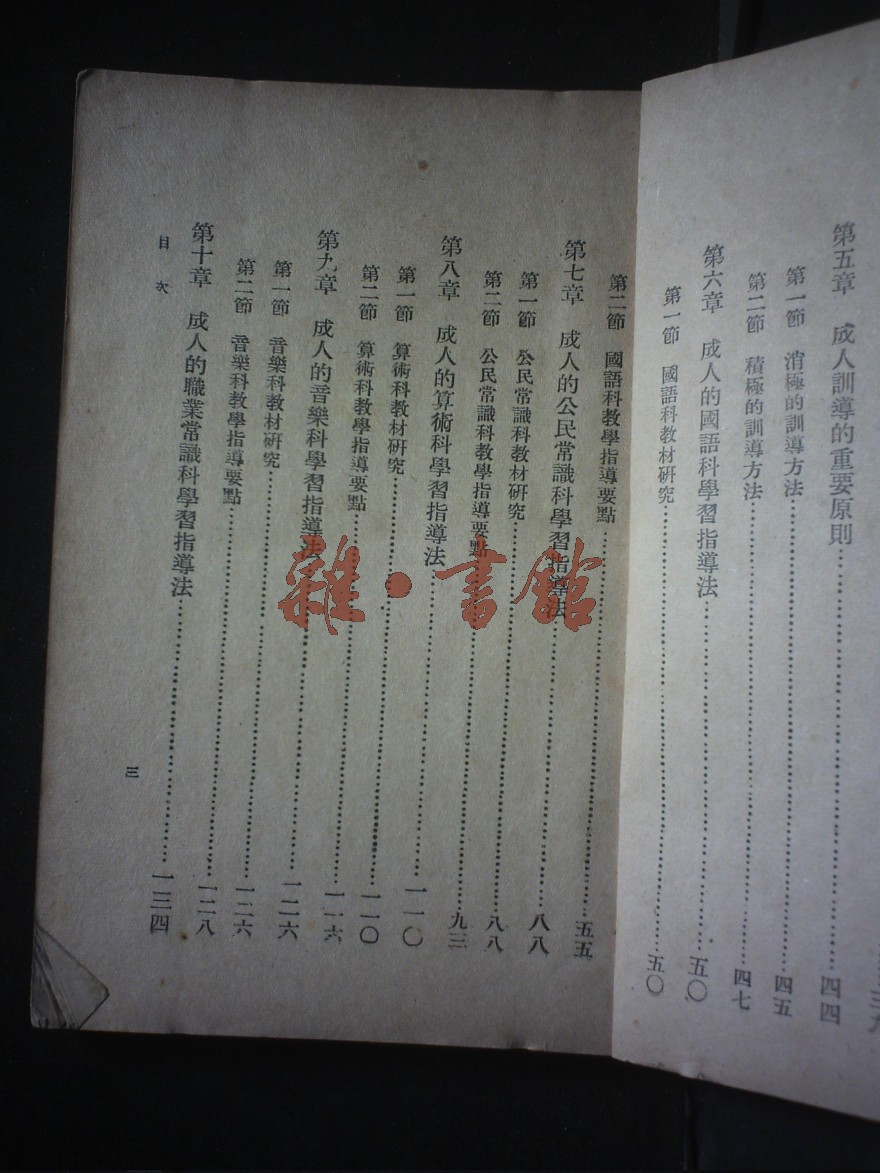 第五章 成人訓導的重要原則……四四
第一節 消極的訓導方法……四五
第二節 積極的訓導方法……四七
第六章 成人的國語科學習指導法……五〇
第一節 國語科教材研究……五〇
第二節 國語科教學指導要點……五五
第七章 成人的公民常識科學習指導法……八八
第一節 公民常識科教材研究……八八
第二節 公民常識科教學指導要點……九三
第八章 成人的算術科學習指導法……一一〇
第一節 算術科教材研究……一一〇
第二節 算術科教學指導要點……一一六
第九章 成人的音樂科學習指導法……一二六
第一節 音樂科教材研究……一二六
第二節 音樂科教學指導要點……一二八
第十章 成人的職業常識科學習指導法……一三四
目次
三
雜·書館